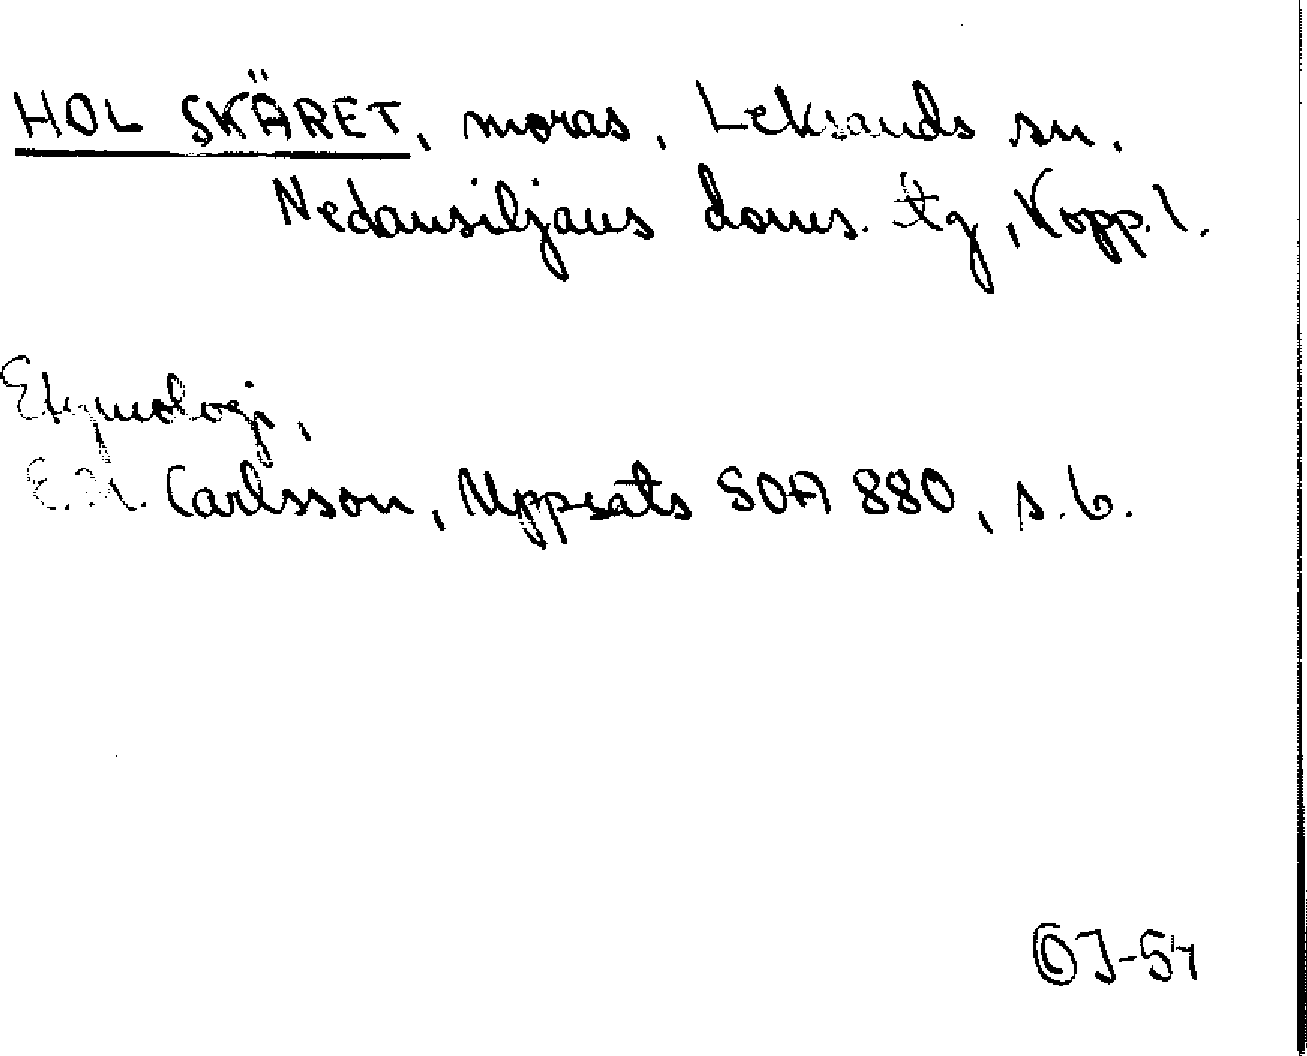 HOLSKÄRET, moras, Leksands sn.
Nedansiljans doms. tg, Kopp.l.
Etymologi,
Carlsson, Uppsats SOA 880, s. 6.
J-54